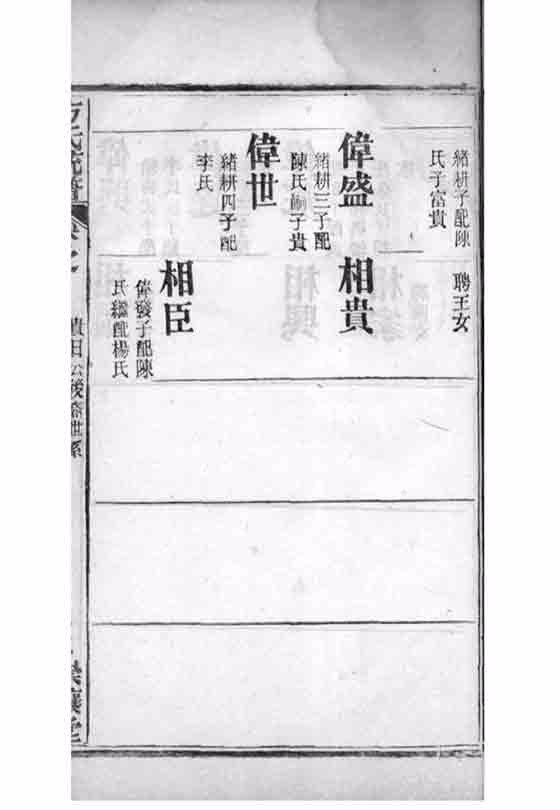 緒耕子配陳
氏子富貴
偉盛
緒耕三子配
陳氏嗣子貴
偉世
緒耕四子配
李氏
聘王女
相貴
相臣
偉發子配陳
氏繼配楊氏
公後裔世系